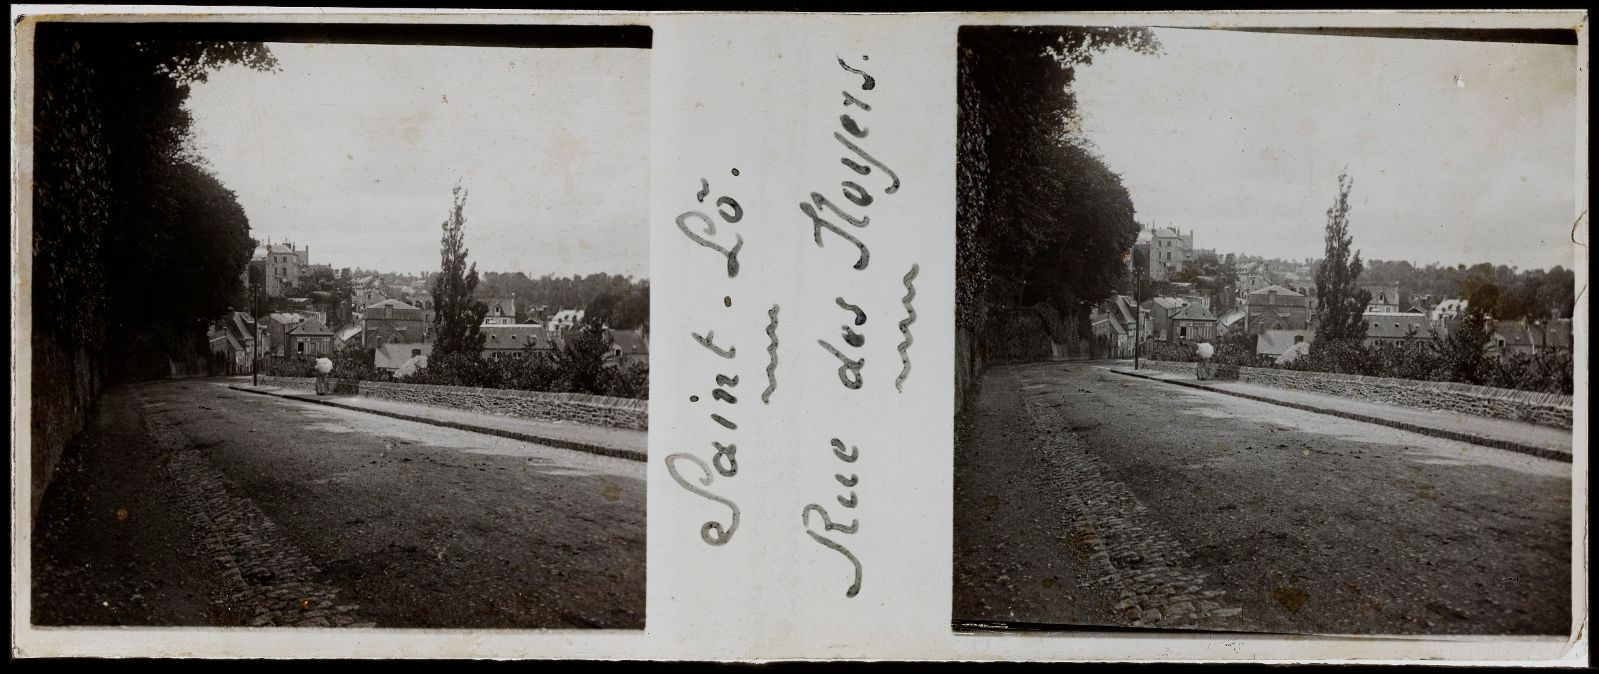 Saint-Lô.
Rue des Noyers.